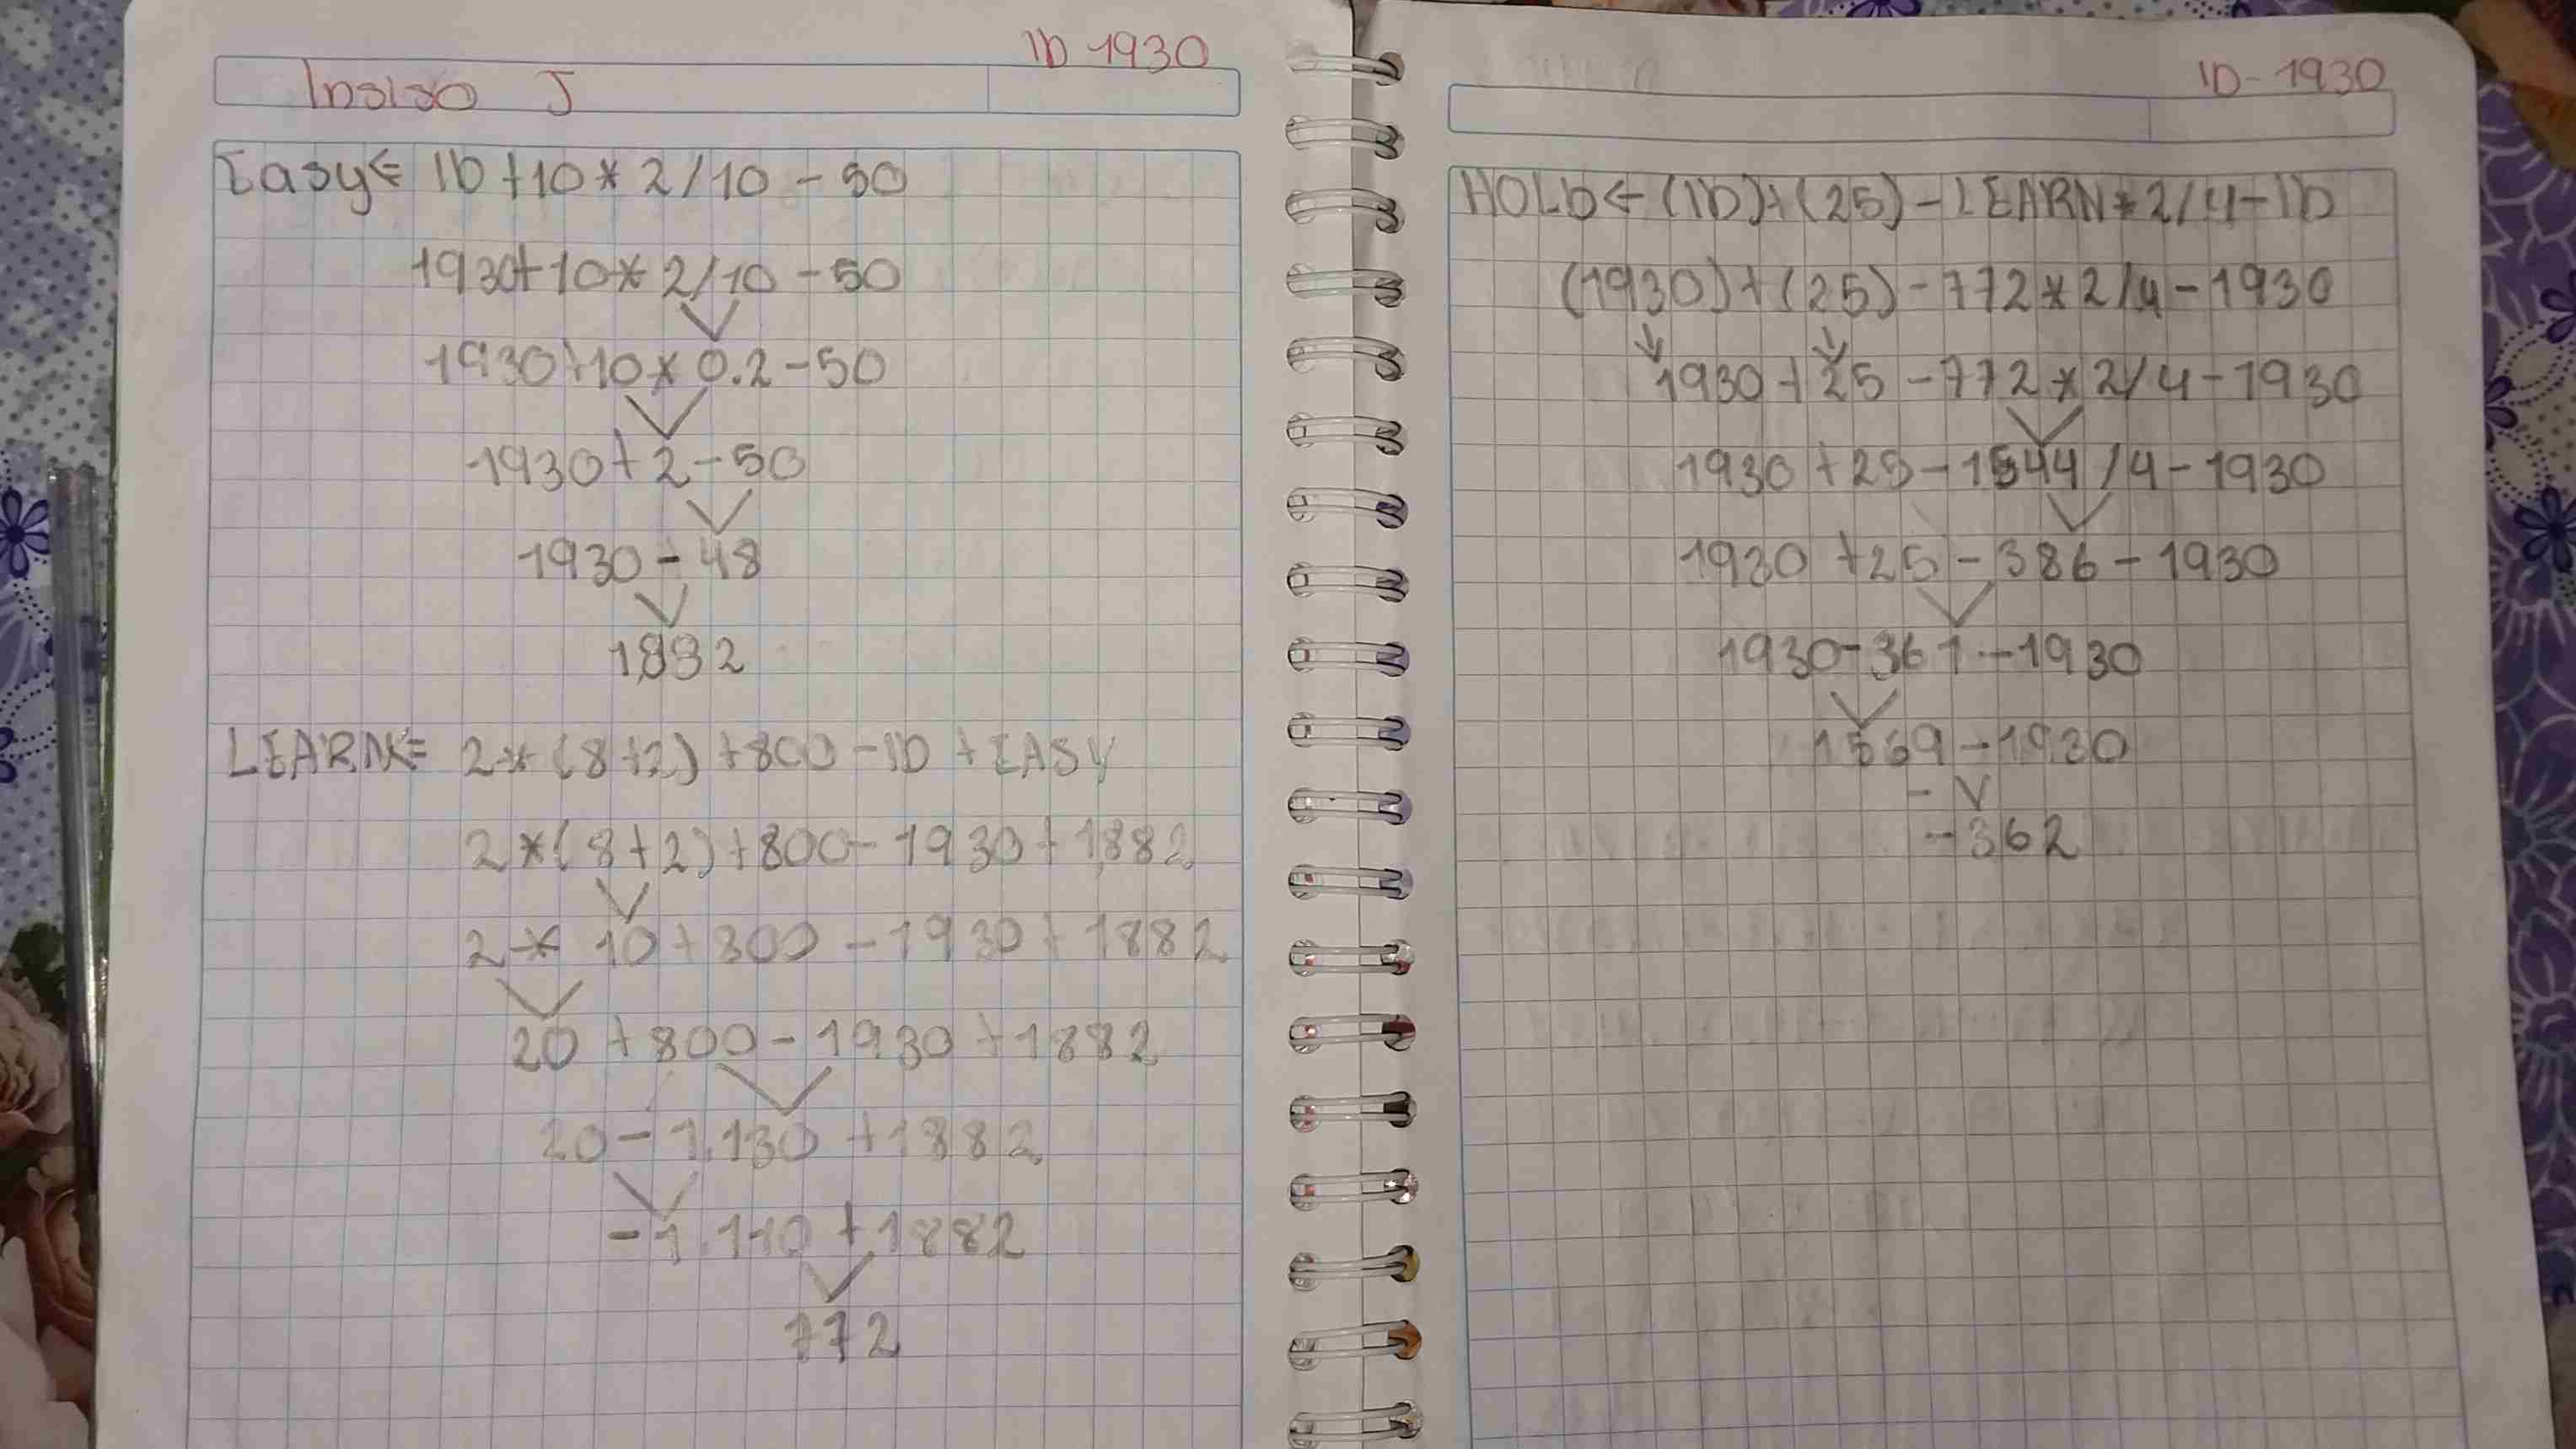 ID 1930
Insiso J
Easy← ID+10*2/10-50
1930+10*2/10-50
1930+10*0.2-50
1930+2-50
1930-48
1,882
LEARN← 2*(8+2)+800-ID+EASY
2*(8+2)+800-1930+1,882
2*10+800-1930+1882
20+800-1930+1882
20-1.130+1882
-1.110+1882
772
ID-1930
HOLD←(ID)+(25)-LEARN*2/4-ID
(1930)+(25)-772*2/4-1930
1930+25-772*2/4-1930
1930+25-1544/4-1930
1930+25-386-1930
1930-361-1930
1569-1930
-362